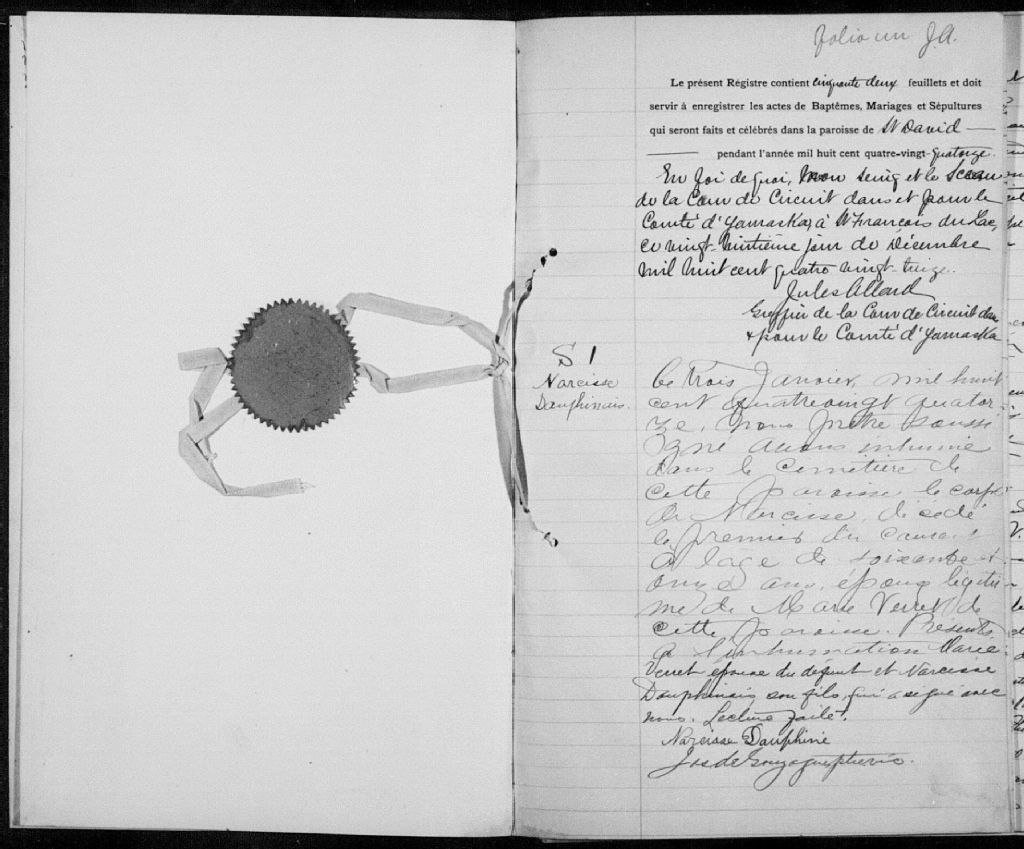 folio un J.A.
Le présent Régistre contient cinquante deux feuillets et doit
servir à enregistrer les actes de Baptêmes, Mariages et Sépultures
qui seront faits et célébrés dans la paroisse de St David
pendant l'année mil huit cent quatre-vingt-quatorze.
En foi de quoi, mon seing et le sceau
de la Cour de Circuit dans et pour le
Comté d'Yamaska, à St François du Lac,
ce vingt-huitième jour de Décembre
mil huit cent quatre vingt-treize.
Jules Allard
Greffier de la Cour de Circuit dans
& pour le Comté d'Yamaska
S 1
Narcisse
Dauphinais.
Le trois Janvier, mil huit
cent quatrevingt quator-
ze, nous prêtre soussi
gné avons inhumé
dans le cimetière de
cette paroisse le corps
de Narcisse, décédé
le premier du courant
à l'âge de soixante et
onze ans, époux légiti-
me de Marie Verret de
cette paroisse. Présents
à l'inhumation Marie
Verret épouse du défunt et Narcisse
Dauphinais son fils, qui a signé avec
nous. Lecture faite.
Narcisse Dauphine
Jos de Gonzague ptre